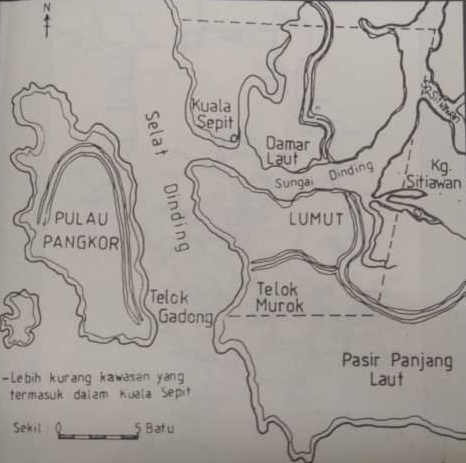 N
Kuala
Sepit
Selat
Dinding
Damar
Laut
Sungai Dinding
Sg. Sitiawan
Kg.
Sitiawan
LUMUT
PULAU
PANGKOR
Telok
Gadong
Telok
Murok
Pasir Panjang
Laut
-Lebih kurang kawasan yang
termasuk dalam Kuala Sepit
Sekil: 0 5 Batu